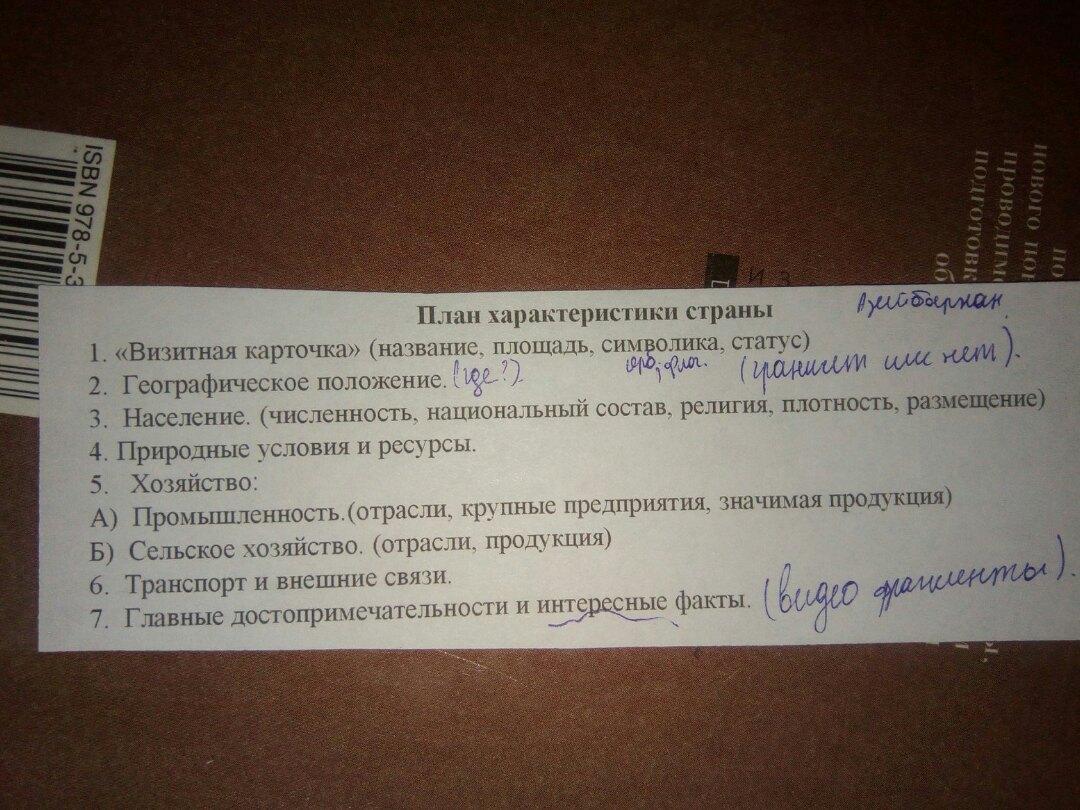 ISBN 978-5-3
нового пов
проводимо
подготовк
об
из
План характеристики страны
Азейбаржан
1. «Визитная карточка» (название, площадь, символика, статус)
2. Географическое положение. (где?). флаг. (граничит или нет).
3. Население. (численность, национальный состав, религия, плотность, размещение)
4. Природные условия и ресурсы.
5. Хозяйство:
А) Промышленность.(отрасли, крупные предприятия, значимая продукция)
Б) Сельское хозяйство. (отрасли, продукция)
6. Транспорт и внешние связи.
7. Главные достопримечательности и интересные факты. (видео фрагменты).